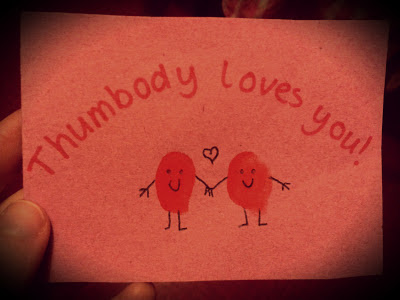 Thumbody loves you!